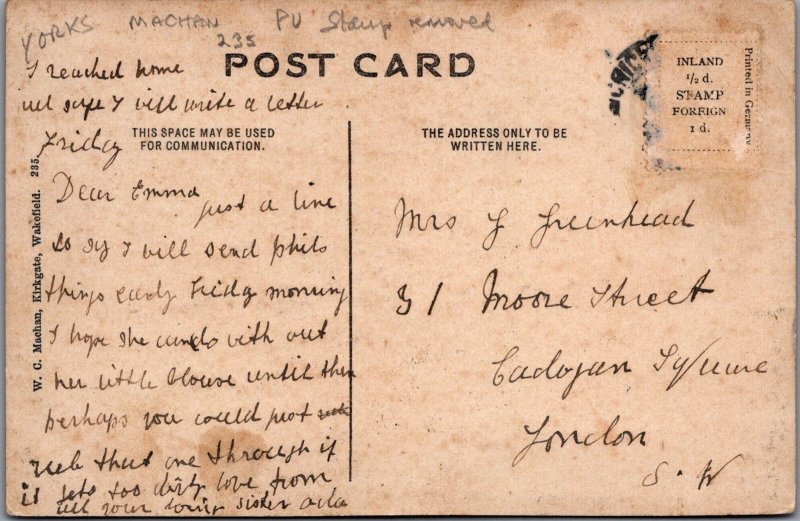 YORKS MACHAN 235 PU Stamp removed
POST CARD
I reached home
all safe I will write a letter
Friday
THIS SPACE MAY BE USED
FOR COMMUNICATION.
Dear Emma just a line
to say I will send phils
things early Friday morning
I hope she can do with out
her little blouse until then
perhaps you could just
rub that one through if
it gets too dirty love from
all your loving sister ada
W. C. Machan, Kirkgate, Wakefield. 235.
THE ADDRESS ONLY TO BE
WRITTEN HERE.
Mrs G Greenhead
31 Moore Street
Cadogan Square
London
S. W
INLAND
½ d.
STAMP
FOREIGN
1 d.
Printed in Germany